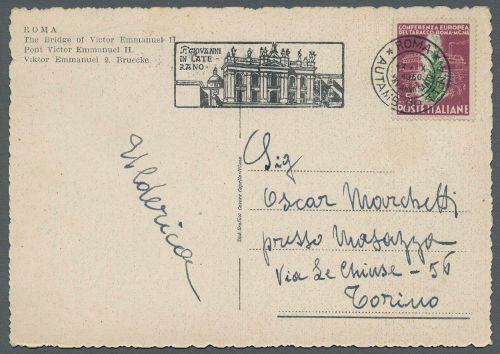 ROMA
The Bridge of Victor Emmanuel II
Pont Victor Emmanuel II.
Viktor Emmanuel 2. Bruecke.
S. GIOVANNI
IN LATE-
RANO
ROMA
CONFERENZA EUROPEA
DEL TABACCO·ROMA·MCML
POSTE ITALIANE
Ulderica
Sig
Oscar Marchetti
presso Masazza
Via Le Chiuse - 56
Torino